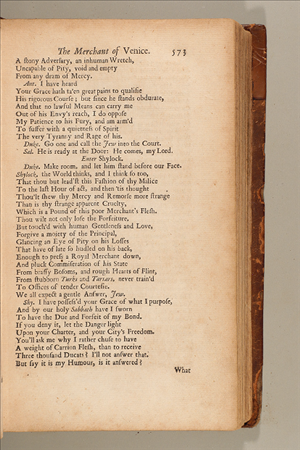 The Merchant of Venice. 573
A stony Adversary, an inhuman Wretch,
Uncapable of Pity, void and empty
From any dram of Mercy.
Ant. I have heard
Your Grace hath ta'en great pains to qualifie
His rigorous Course; but since he stands obdurate,
And that no lawful Means can carry me
Out of his Envy's reach, I do oppose
My Patience to his Fury, and am arm'd
To suffer with a quietness of Spirit
The very Tyranny and Rage of his.
Duke. Go one and call the Jew into the Court.
Sal. He is ready at the Door: He comes, my Lord.
Enter Shylock.
Duke. Make room, and let him stand before our Face.
Shylock, the World thinks, and I think so too,
That thou but lead'st this Fashion of thy Malice
To the last Hour of act, and then 'tis thought
Thou'lt shew thy Mercy and Remorse more strange
Than is thy strange apparent Cruelty,
Which is a Pound of this poor Merchant's Flesh.
Thou wilt not only lose the Forfeiture,
But touch'd with human Gentleness and Love,
Forgive a moiety of the Principal,
Glancing an Eye of Pity on his Losses
That have of late so hudled on his back,
Enough to press a Royal Merchant down,
And pluck Commiseration of his State
From brassy Bosoms, and rough Hearts of Flint,
From stubborn Turks and Tartars, never train'd
To Offices of tender Courtesie.
We all expect a gentle Answer, Jew.
Shy. I have possess'd your Grace of what I purpose,
And by our holy Sabbath have I sworn
To have the Due and Forfeit of my Bond.
If you deny it, let the Danger light
Upon your Charter, and your City's Freedom.
You'll ask me why I rather chuse to have
A weight of Carrion Flesh, than to receive
Three thousand Ducats? I'll not answer that.
But say it is my Humour, is it answered?
What